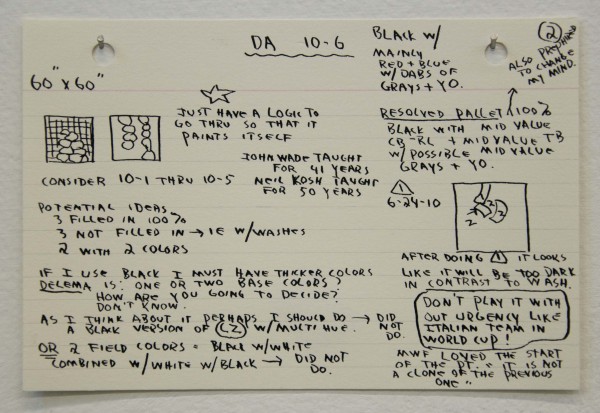 DA 10-6
60" x 60"
BLACK W/
MAINLY
RED + BLUE
W/ DABS OF
GRAYS + YO.
2
ALSO PREPARED
TO CHANGE
MY MIND.
JUST HAVE A LOGIC TO
GO THRU SO THAT IT
PAINTS ITSELF
RESOLVED PALLET 100%
BLACK WITH MID VALUE
CB-RL + MID VALUE TB
W/ POSSIBLE MID VALUE
GRAYS + YO.
JOHN WADE TAUGHT
FOR 41 YEARS
NEIL KOSH TAUGHT
FOR 50 YEARS
CONSIDER 10-1 THRU 10-5
1
6-24-10
2 2 2
POTENTIAL IDEAS
3 FILLED IN 100%
3 NOT FILLED IN → IE W/WASHES
2 WITH 2 COLORS
AFTER DOING 1 IT LOOKS
LIKE IT WILL BE TOO DARK
IN CONTRAST TO WASH.
IF I USE BLACK I MUST HAVE THICKER COLORS
DELEMA IS: ONE OR TWO BASE COLORS?
HOW ARE YOU GOING TO DECIDE?
DON'T KNOW.
AS I THINK ABOUT IT PERHAPS I SHOULD DO → DID
A BLACK VERSION OF W/ MULTI HUE. NOT
DO.
OR 2 FIELD COLORS = BLACK W/WHITE
COMBINED W/WHITE W/BLACK → DID NOT
DO.
DON'T PLAY IT WITH
OUT URGENCY LIKE
ITALIAN TEAM IN
WORLD CUP!
MWF LOVED THE START
OF THE PT. = IT IS NOT
A CLONE OF THE PREVIOUS
ONE"